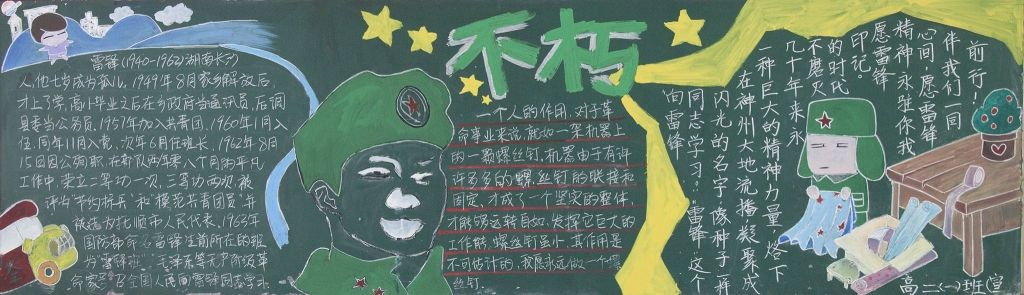 不朽
雷锋(1940-1962)湖南长沙
人,他七岁成为孤儿。1949年8月家乡解放后,
才上了学,高小毕业之后在乡政府当通讯员,后调
县委当公务员,1957年加入共青团,1960年1月入
伍,同年11月入党,次年6月任班长,1962年8月
15日因公殉职,在部队两年零八个月的平凡
工作中,荣立二等功一次,三等功两次,被
评为"节约标兵"和"模范共青团员",并
被选为抚顺市人民代表,1963年
国防部命名雷锋生前所在的班
为"雷锋班",毛泽东等无产阶级革
命家号召全国人民向雷锋同志学习.
一个人的作用,对于革
命事业来说,就如一架机器上
的一颗螺丝钉,机器由于有许
许多多的螺丝钉的联接和
固定,才成了一个坚实的整体,
才能够运转自如,发挥它巨大的
工作能,螺丝钉虽小,其作用是
不可估计的,我愿永远做一个螺
丝钉.
向雷锋
同志学习.
雷锋 这个
闪光的名字,像种子一样
在神州大地流播凝聚成
一种巨大的精神力量,烙下
几十年来永
不磨灭
的时代
印记。
愿雷锋
精神永驻你我
心间,愿雷锋
伴我们一同
前行!
高二(一)班(宣